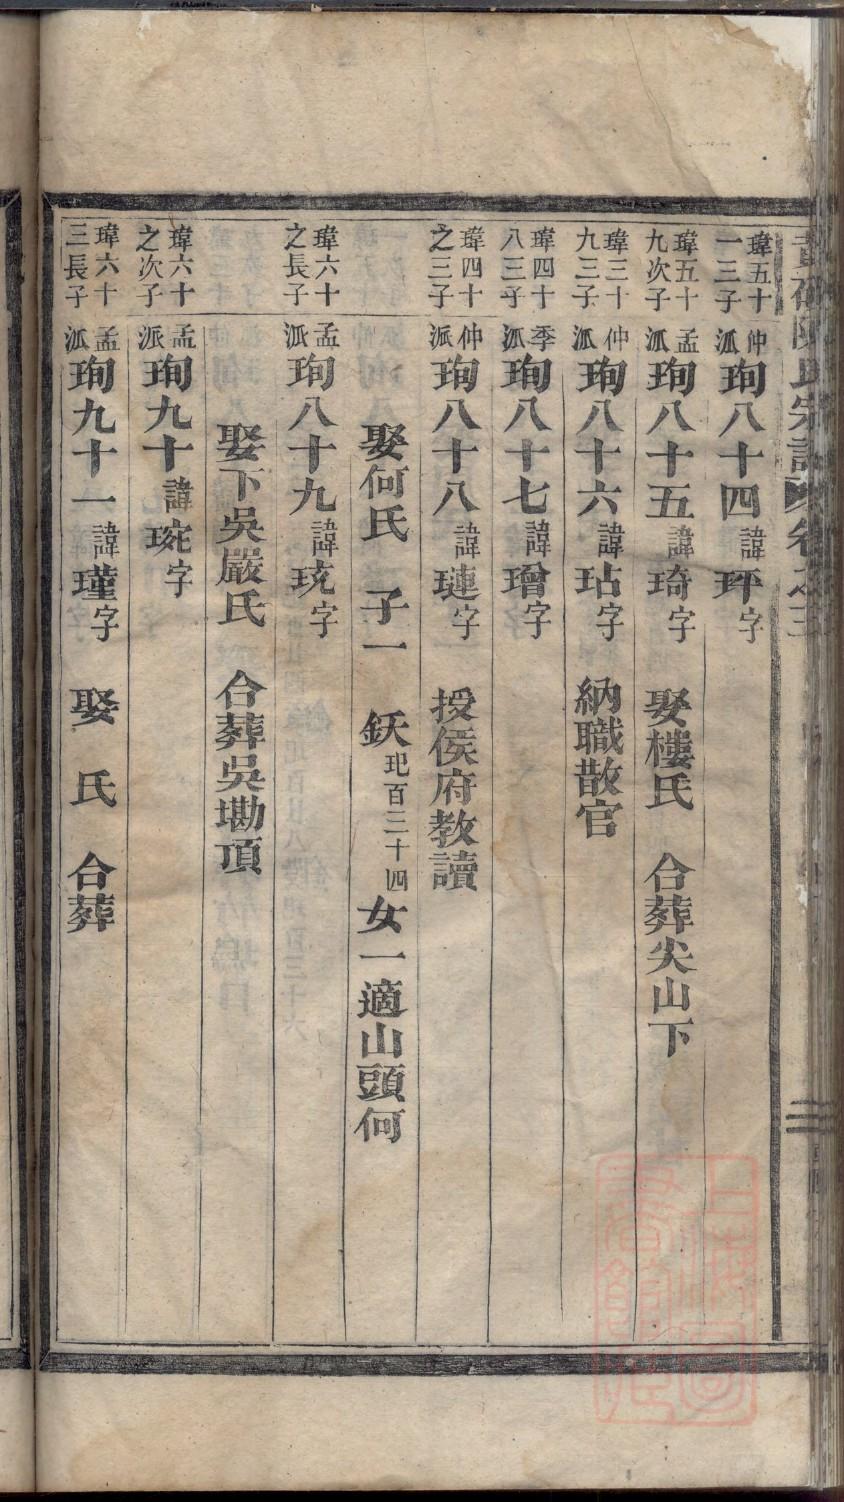 陳氏宗譜 卷之三
瑋五十一三子 仲派 珣八十四 諱玶字
瑋五十九次子 孟派 珣八十五 諱琦字 娶樓氏 合葬尖山下
瑋三十九三子 仲派 珣八十六 諱玷字 納職散官
瑋四十八三子 季派 珣八十七 諱璔字
瑋四十之三子 仲派 珣八十八 諱璉字 授侯府教讀
娶何氏 子一 鈨玘百三十四 女一適山頭何
瑋六十之長子 孟派 珣八十九 諱琓字
娶下吳嚴氏 合葬吳墈頂
瑋六十之次子 孟派 珣九十 諱琬字
瑋六十三長子 孟派 珣九十一 諱瑾字 娶 氏 合葬
上海圖書館藏